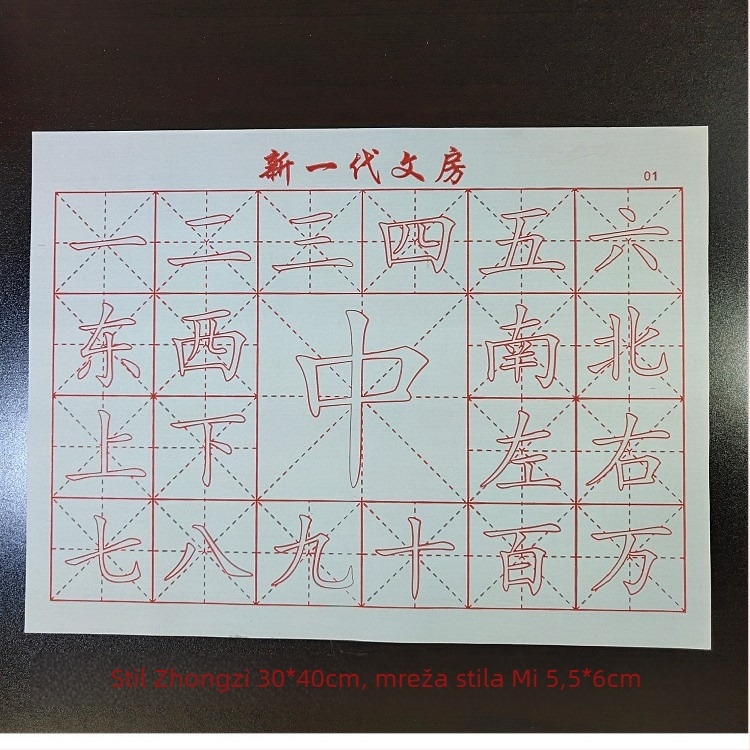 新一代文房
01
一二三四五六
东西中南北
上下左右
七八九十百万
Stil Zhongzi 30*40cm, mreža stila Mi 5,5*6cm